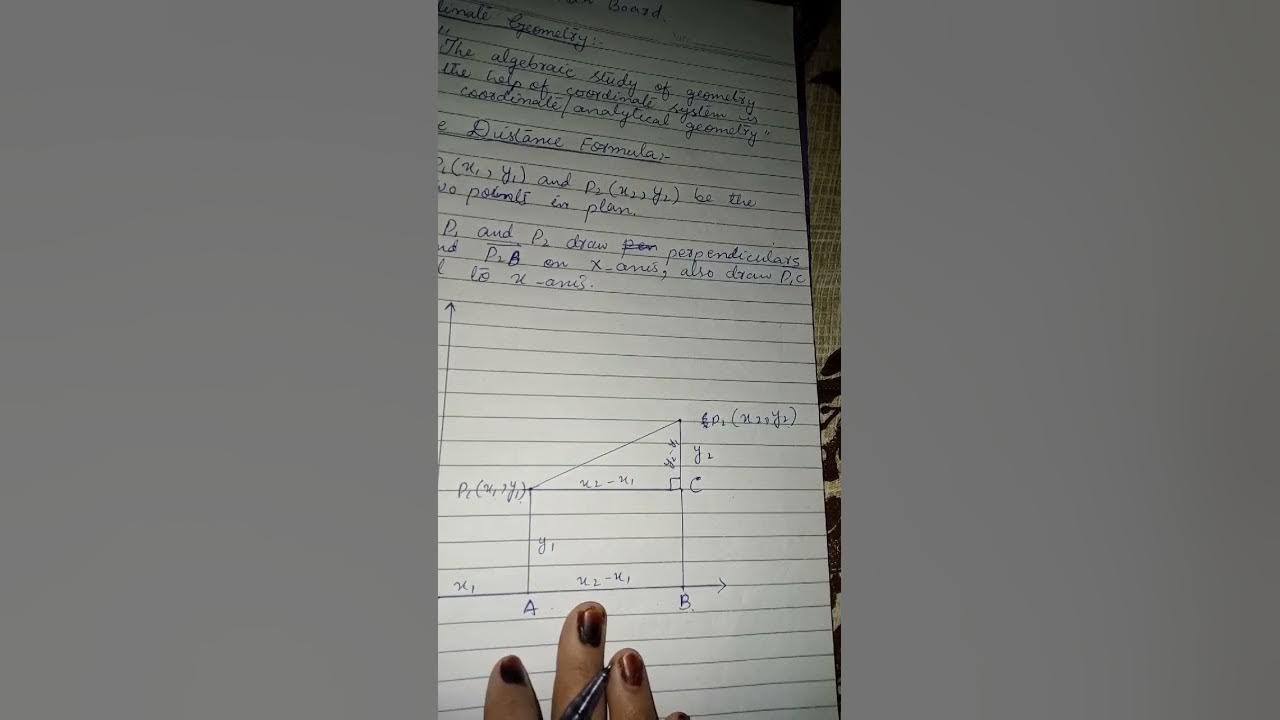 Board.
dinate Geometry:-
"The algebraic study of geometry
the help of coordinate system is
coordinate/analytical geometry"
e Distance Formula:-
P₁(x₁, y₁) and P₂(x₂, y₂) be the
wo points in plan.
P₁ and P₂ draw perpendiculars
nd P₂B on x-axis, also draw P₁C
l to x-axis.
P₂(x₂, y₂)
y₂-y₁
y₂
P₁(x₁, y₁)
x₂-x₁
C
y₁
x₁
x₂-x₁
A
B